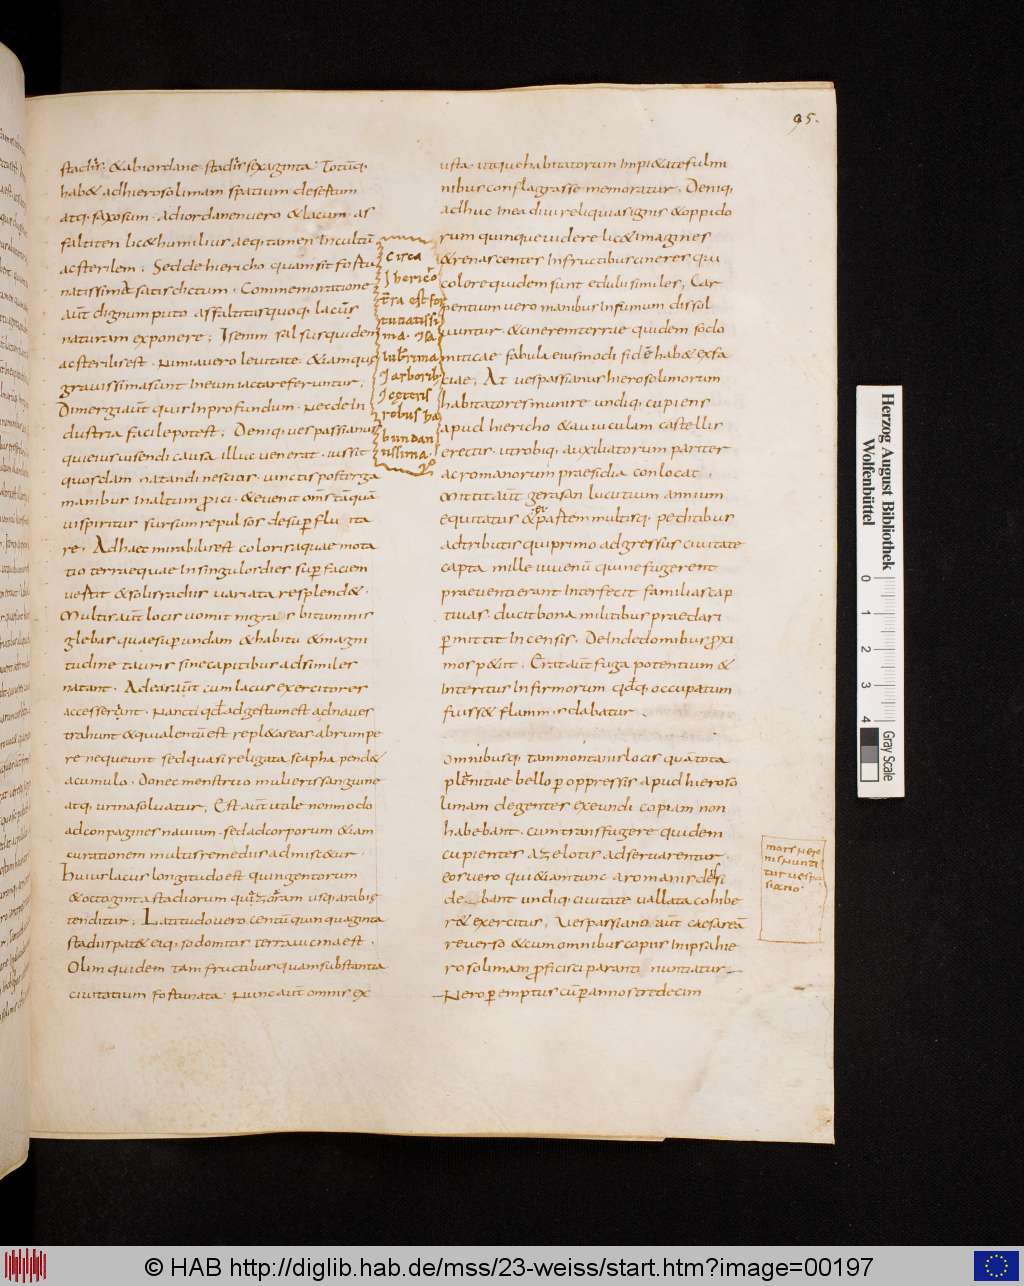 95.
stadiis. & abiordane stadiis sexaginta. Totūq;
hab& adhierosolimam spatium desertum
atq; saxosum. Adiordanen uero & lacum as
falsiten lic& humilius aeq; tamen incultū
ac sterilem; Sed de hiericho quam sit fortu
natissima satis dictum. Commemoratione
aūt dignum puto asfaltitis quoq; lacus
naturam exponere; Is enim salsus quidem
ac sterilis est. Nimia uero leuitate. & iam quę
grauissima sunt In eum iacta referuntur;
Dimergi aūt quis In profundum. Nec de In
dustria facile potest; Deniq; uespasianus
qui eius uisendi causa illuc uenerat. iussit
quosdam natandi nescios. uinctis post terga
manibus In altum proici. & euenit oms tūquā
ui spiritus sursum repulsos desup flu ita
re; Ad haec mirabilis est coloris aquae mota
tio ter naequae In singulos dies sup faciem
uertit & solis radiis uariata resplend&.
Multis aūt locis uomit nigras bituminis
glebas quae sup undam & habitu & magni
tudine tauris sine capitibus adsimiles
natant. Ad eas aūt cum lacus exercitores
accesserunt. Nancti qd adgestum est ad naues
trahunt
re nequeunt sed quasi religata scapha pend&
acumulo. Donec menstruo mulieris sanguine
atq; urina soluatur; Est aūt utile non modo
ad conpagines nauium. sed ad corporum &iam
curationem multis remediis admisc&ur.
huius lacus longitudo est quingentorum
& octoginta stadiorum
tenditur; Latitudo uero centū quinquaginta
stadiis pat& eiq; sodomitis terra uicina est.
Olim quidem tam fructibus quam substantia
ciuitatium fortunata Nunc aūt omnis ex
circa
hierico
tra est for
tunatissi
ma
uberrima
arborib
ceteris
rebus ha
bundan
tissima.
usta. utique habitatorum Impi&ate fulmi
nibus conflagrasse memoratur. Deniq;
adhuc In ea diui reliquias ignis & oppido
rum quinque uidere lic& imagines
& renascentes In fructibus cineres qui
colore quidem sunt edulibus similes; Car
pentium uero manibus In fumum dissol
uuntur & cinerem terrae quidem sodo
miticae fabula eiusmodi fide hab& ex fa
ciae; At uespassianus hierosolimorum
habitatores munire undiq; cupiens
apud hiericho & auiculam castellis
erectis. utrobiq; auxiliatorum pariter
ac romanorum praesidia conlocat;
Mittit aūt gerasan lucium annium
equitatus & partem multisq; peditibus
adtributis qui primo adgressus ciuitate
capta mille iuuenū qui ne fugerent
praeuenti erant Interfecit familias cap
tiuas ducit bona militibus praedari
pmittit Incensis. De Inde domibus pxi
mos p&iit. Erat aūt fuga potentium &
Interitus Infirmorum qdq; occupatum
fuiss& flammis dabatur.
Omnibusq; tam montanis locis quā tota
plenitiae bello p oppressis apud hieroso
limam degentes exeundi copiam non
habebant. cum transfugere quidem
cupientes azelotis adseruarentur.
eos uero qui &iam tunc aromanis
de bant undiq; ciuitate uallata cohibe
r& exercitus; Vespassiano aūt caesareā
reuerso & cum omnibus copiis Impsa hie
rosolimam pficisci paranti nuntiatur
Nero p emptus cū p annos tredecim
mors Ner
nis Nunti
tur uespa
siano
Herzog August Bibliothek
Wolfenbüttel
0 1 2 3 4
Gray Scale
© HAB http://diglib.hab.de/mss/23-weiss/start.htm?image=00197